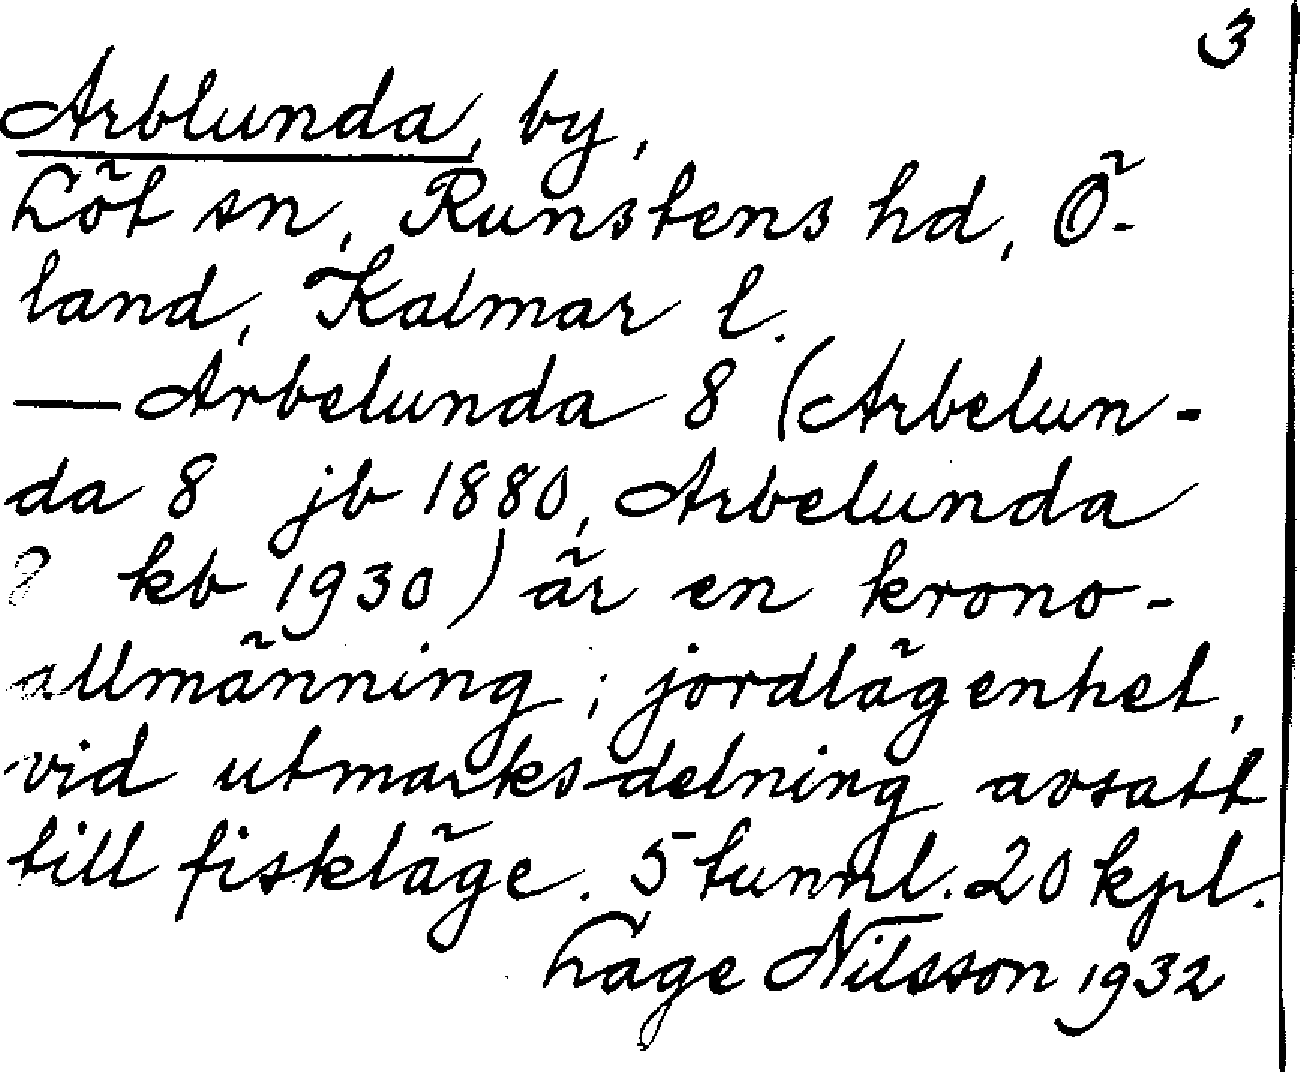 3
Arblunda, by,
Löt sn, Runstens hd, Ö-
land, Kalmar l.
— Arbelunda 8 (Arbelun-
da 8 jb 1880, Arbelunda
? kb 1930) är en krono-
allmänning; jordlägenhet,
vid utmarksdelning avsatt
till fiskläge. 5 tunnl. 20 kpl.
Lage Nilsson 1932